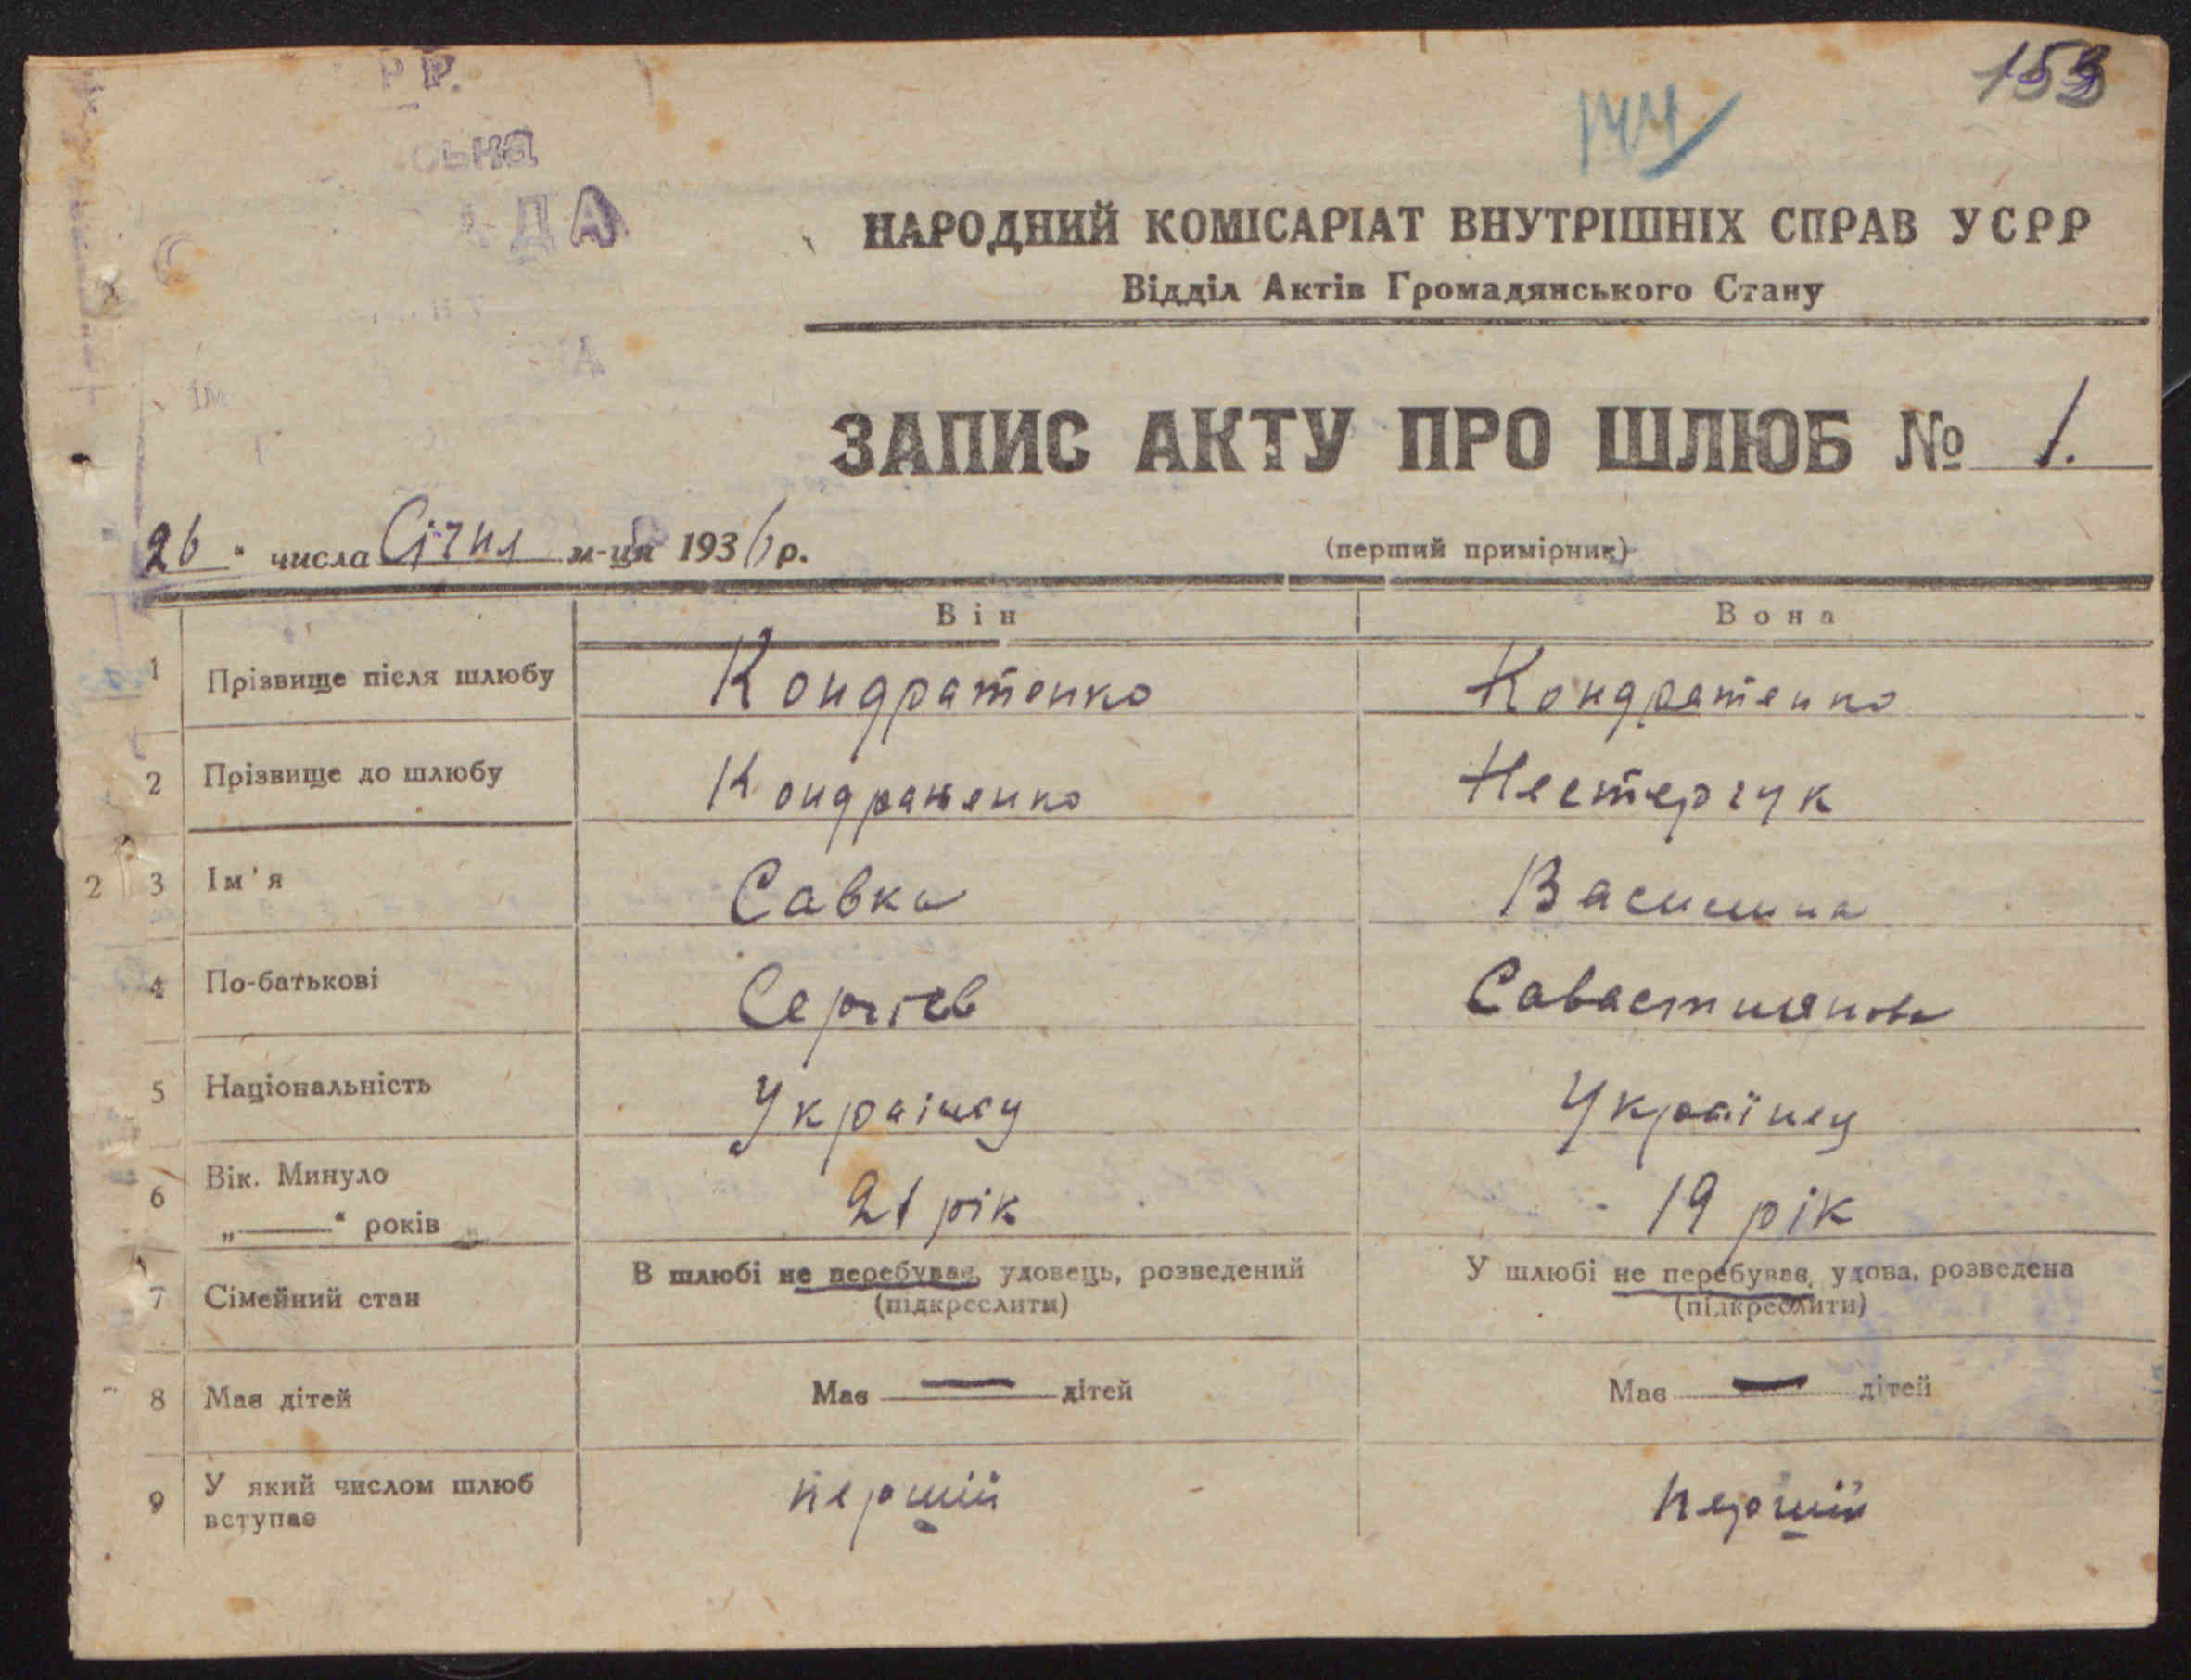 153
144
РР.
ьна
ДА
НАРОДНИЙ КОМІСАРІАТ ВНУТРІШНІХ СПРАВ УСРР
Відділ Актів Громадянського Стану
ЗАПИС АКТУ ПРО ШЛЮБ № 1.
26 " числа Січня м-ця 1936 р.
(перший примірник)
Він Вона
1 Прізвище після шлюбу Кондратенко Кондратенко
2 Прізвище до шлюбу Кондратенко Нестерчук
2 3 Ім'я Савка Василина
4 По-батькові Сергієв Савастиянова
5 Національність Українец Українец
6 Вік. Минуло
„——" років 21 рік 19 рік
7 Сімейний стан В шлюбі не перебуває, удовець, розведений У шлюбі не перебуває, удова, розведена
(підкреслити) (підкреслити)
8 Має дітей Має — дітей Має — дітей
9 У який числом шлюб
вступає перший перший